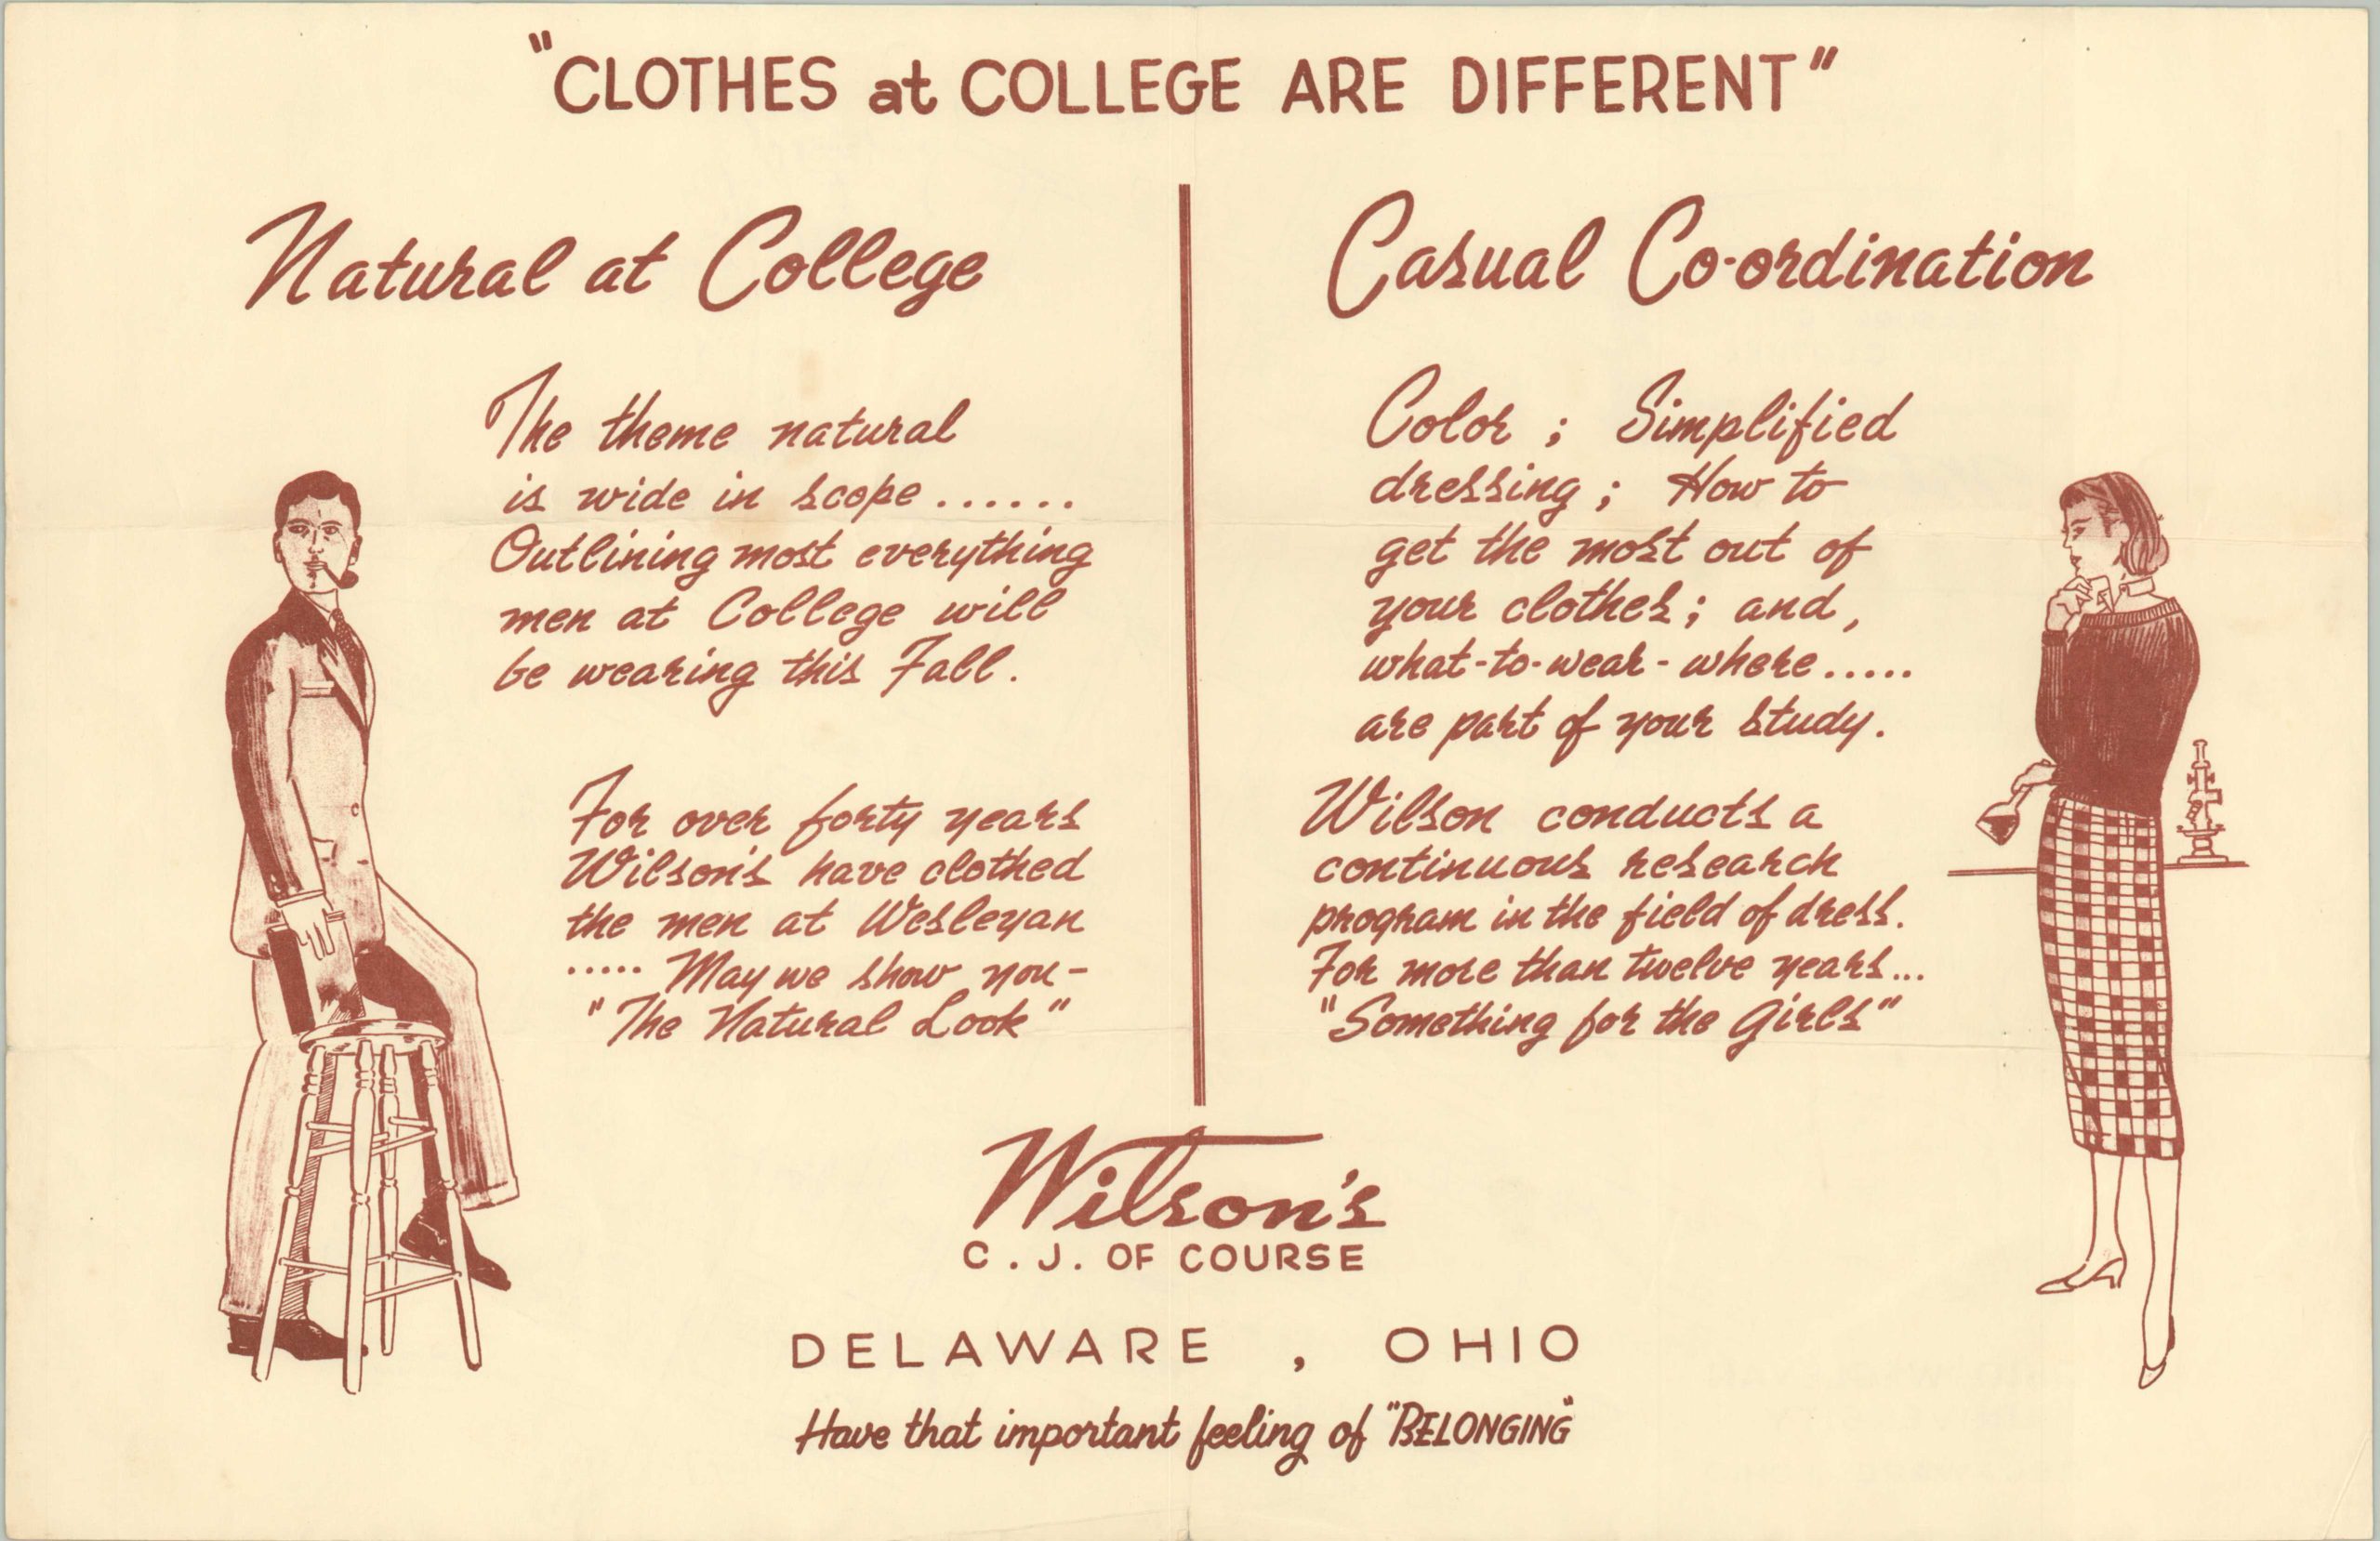 "CLOTHES at COLLEGE ARE DIFFERENT"
Natural at College
The theme natural
is wide in scope ......
Outlining most everything
men at College will
be wearing this Fall.
For over forty years
Wilson's have clothed
the men at Wesleyan
..... May we show you-
"The Natural Look"
Casual Co-ordination
Color ; Simplified
dressing ; How to
get the most out of
your clothes ; and,
what-to-wear-where.....
are part of your study.
Wilson conducts a
continuous research
program in the field of dress.
For more than twelve years...
"Something for the Girls"
Wilson's
C. J. OF COURSE
DELAWARE, OHIO
Have that important feeling of "BELONGING"